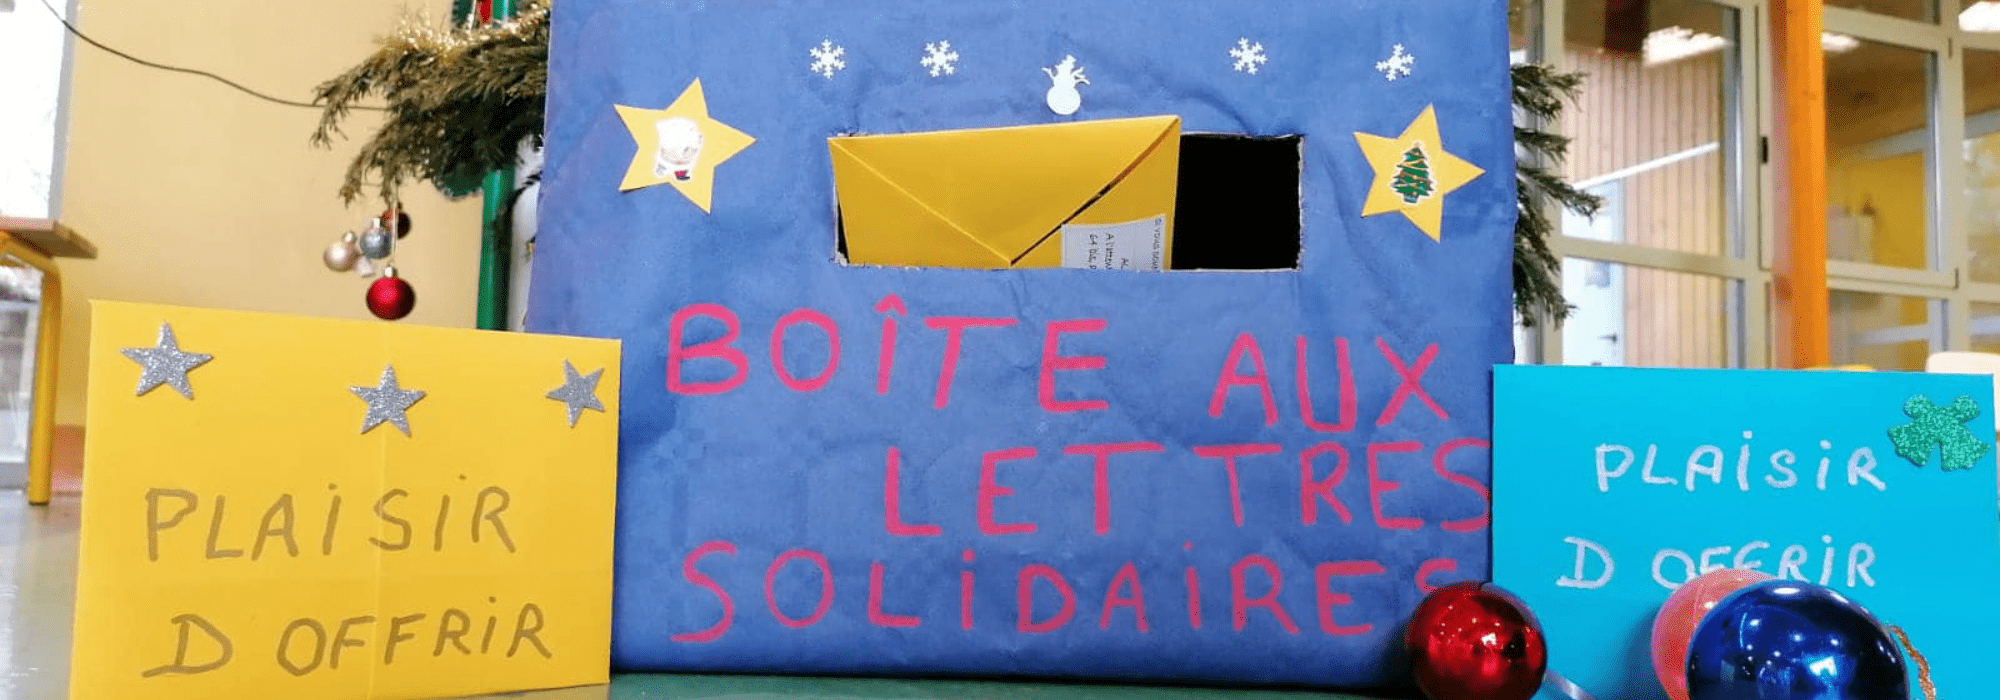 BOÎTE AUX
LETTRES
SOLIDAIRES
PLAISIR
D OFFRIR
PLAISIR
D OFFRIR